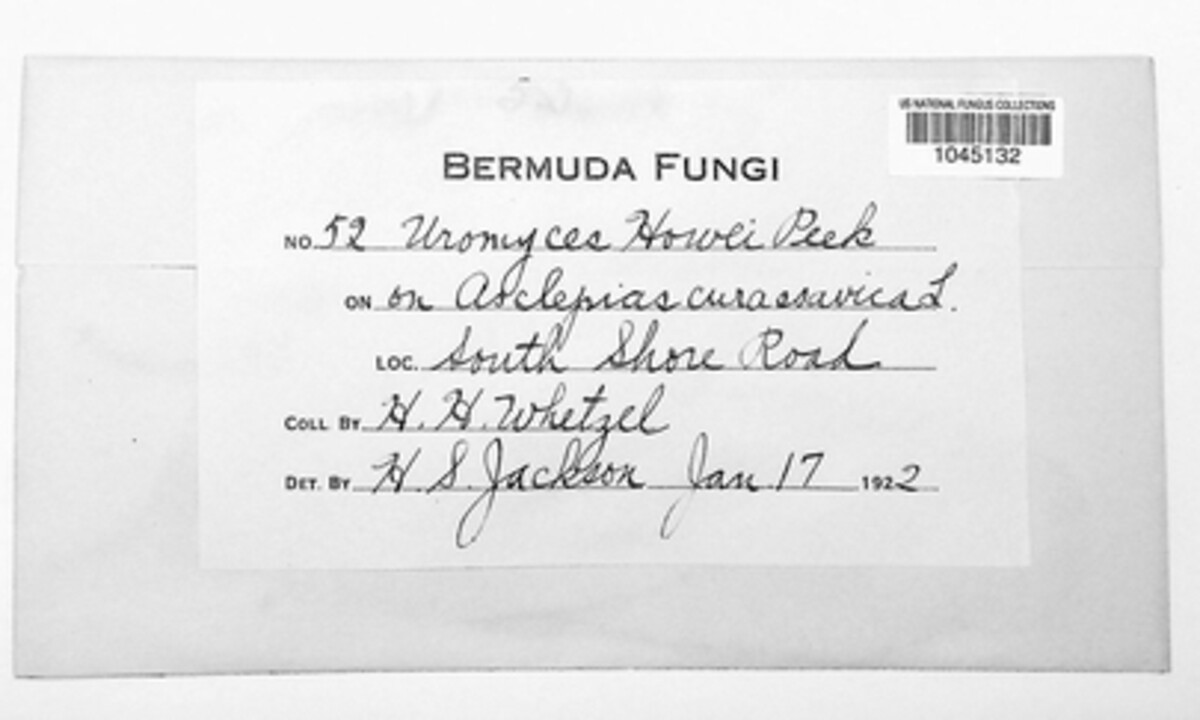 US NATIONAL FUNGUS COLLECTIONS
1045132
BERMUDA FUNGI
NO. 52 Uromyces Howei Peck
ON on Asclepias curassavica L.
LOC. South Shore Road
COLL BY H. H. Whetzel
DET. BY H. S. Jackson Jan 17 1922